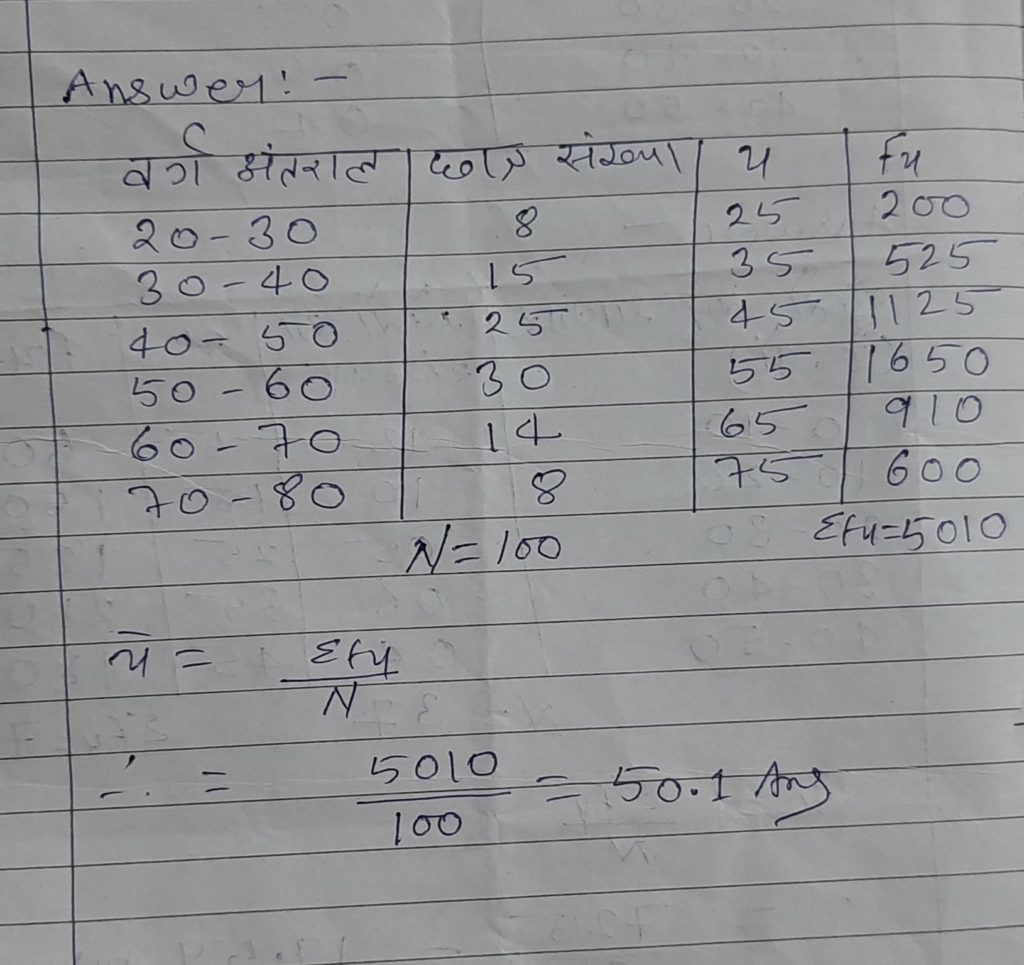 Answer:-
वर्ग अंतराल छात्र संख्या x fx
20-30 8 25 200
30-40 15 35 525
40-50 25 45 1125
50-60 30 55 1650
60-70 14 65 910
70-80 8 75 600
N=100 Σfx=5010
x̄ = Σfx
N
∴ = 5010 = 50.1 Ans
100